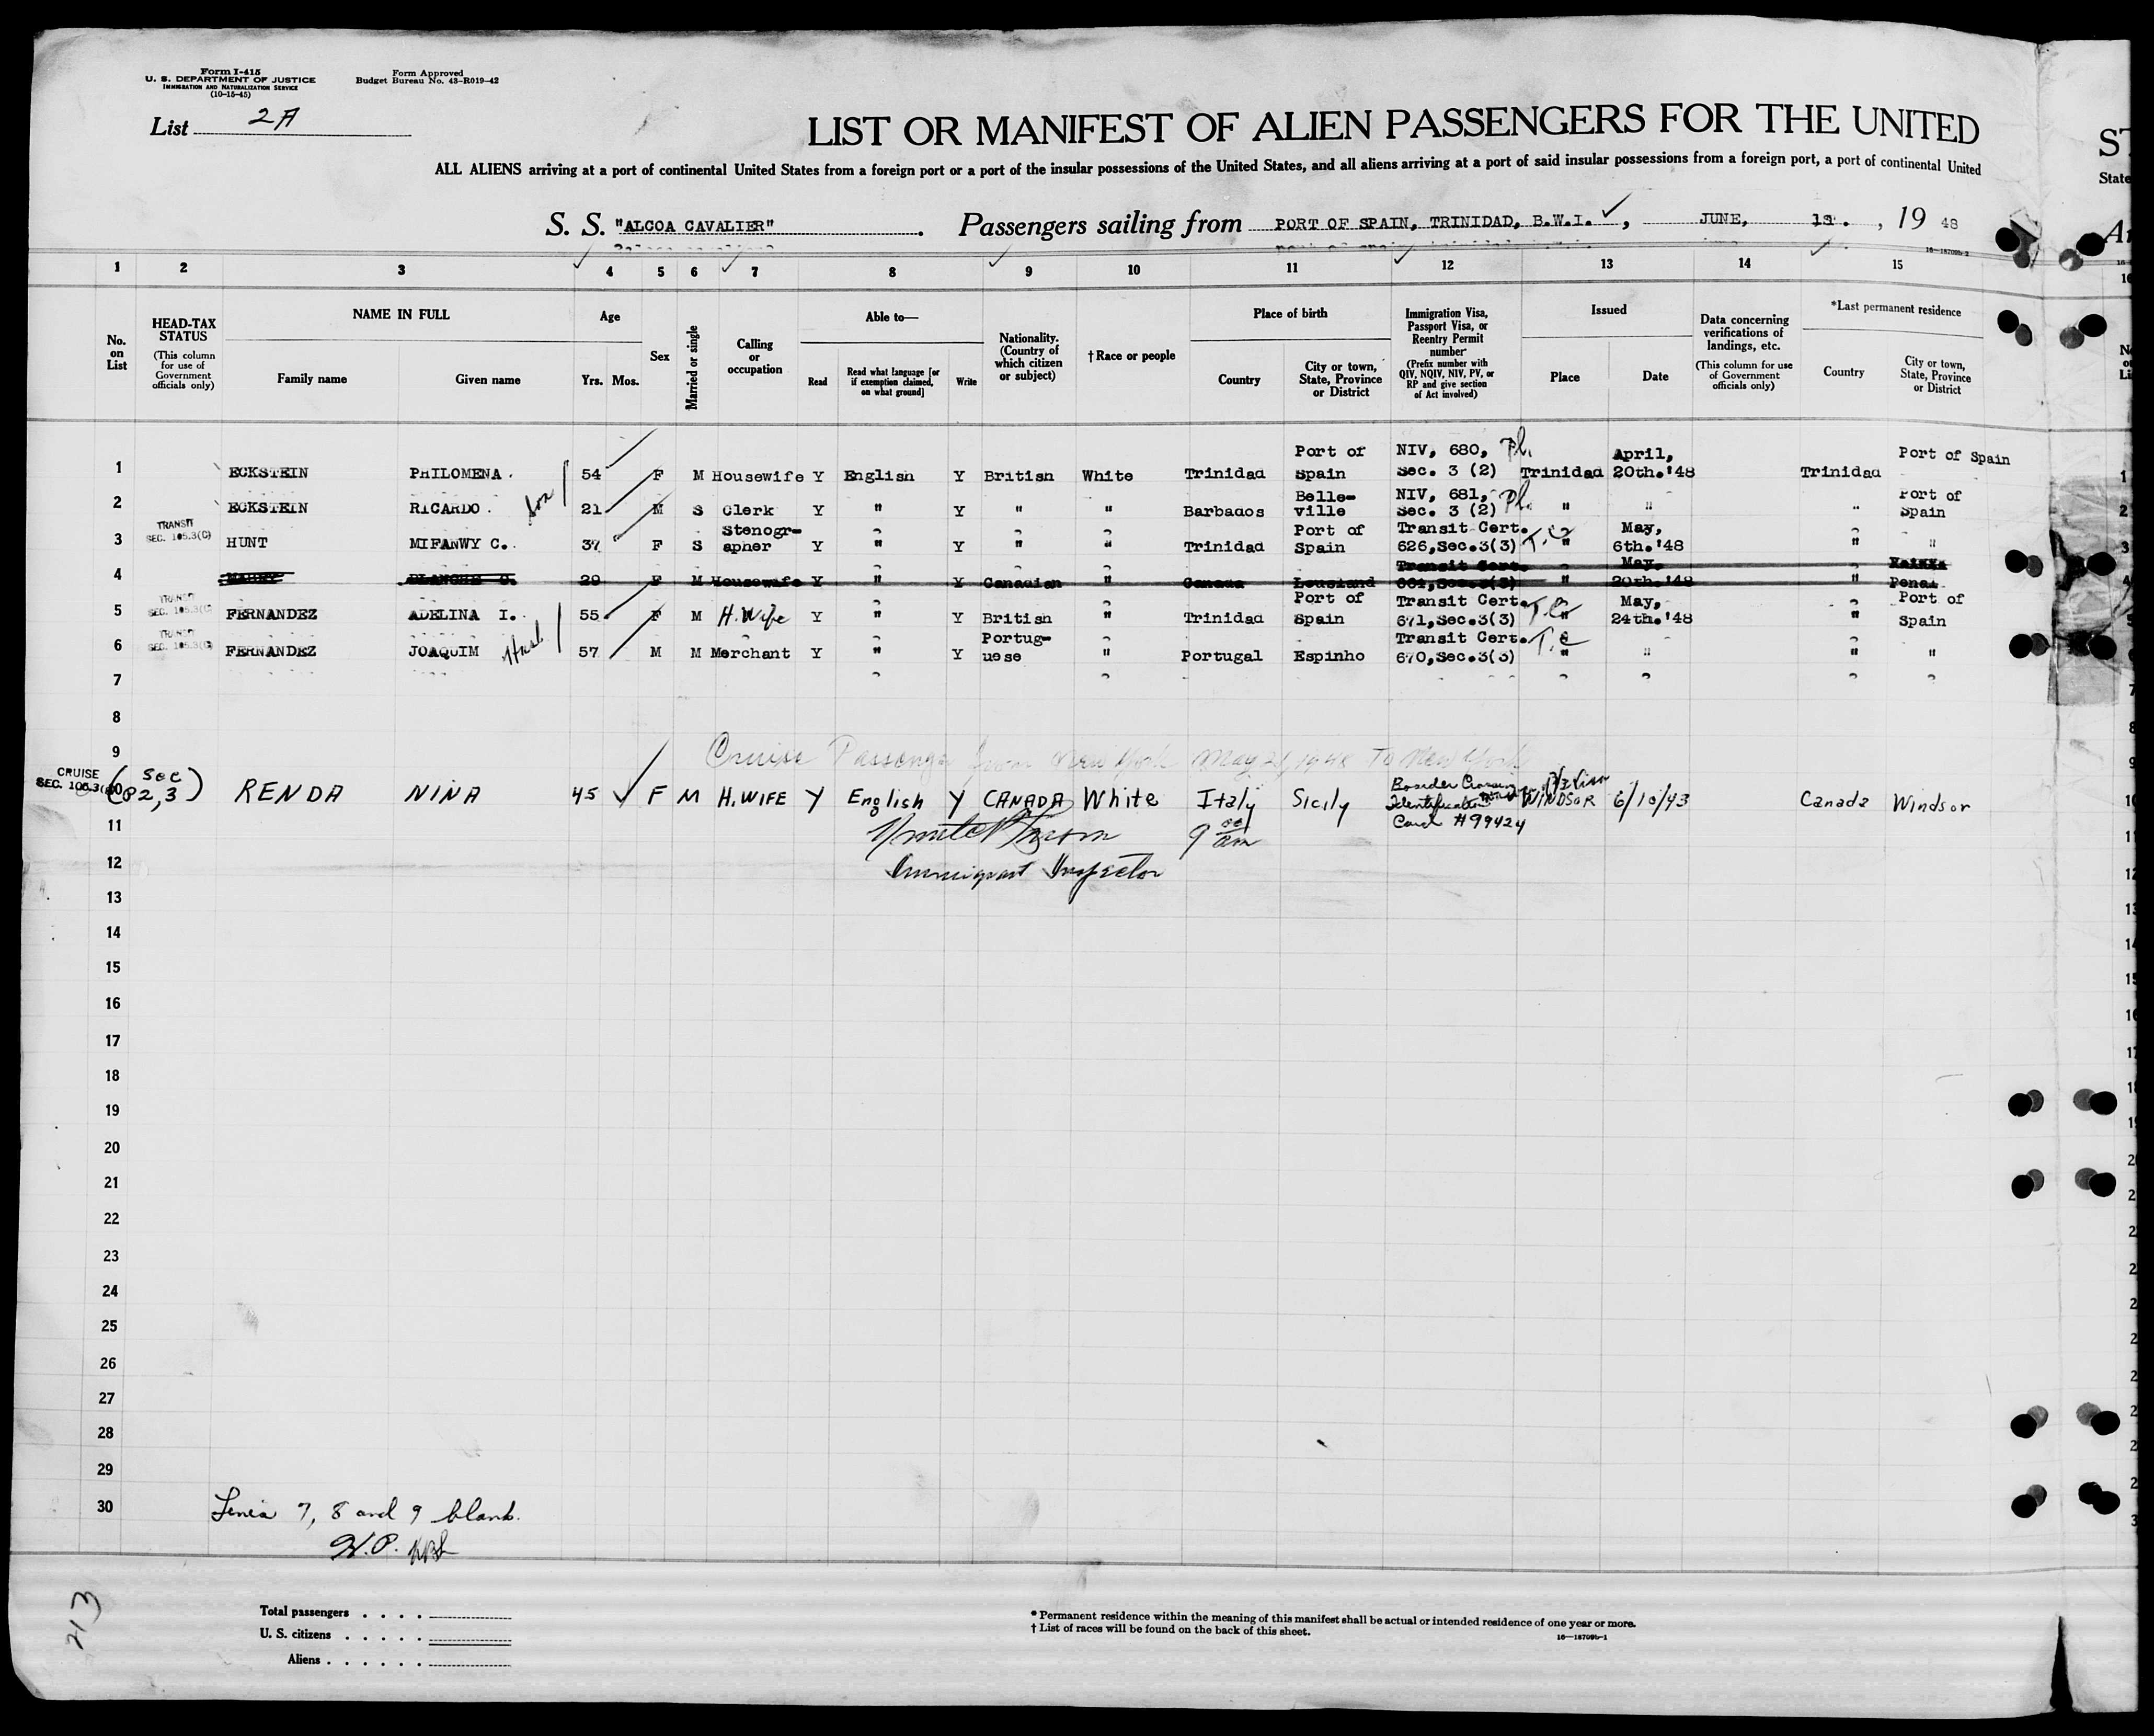 Form I-415
U. S. DEPARTMENT OF JUSTICE
IMMIGRATION AND NATURALIZATION SERVICE
(10-15-45)
Form Approved
Budget Bureau No. 43-R019-42
List 2A
LIST OR MANIFEST OF ALIEN PASSENGERS FOR THE UNITED
ALL ALIENS arriving at a port of continental United States from a foreign port or a port of the insular possessions of the United States, and all aliens arriving at a port of said insular possessions from a foreign port, a port of continental United
State
S. S. "ALCOA CAVALIER" . Passengers sailing from PORT OF SPAIN, TRINIDAD, B.W.I. , JUNE, 1st. , 19 48
1 2 3 4 5 6 7 8 9 10 11 12 13 14 15
No. on List
HEAD-TAX STATUS
(This column for use of Government officials only)
NAME IN FULL
Family name Given name
Age
Yrs. Mos.
Sex
Married or single
Calling or occupation
Able to—
Read Read what language [or if exemption claimed, on what ground] Write
Nationality. (Country of which citizen or subject)
† Race or people
Place of birth
Country City or town, State, Province or District
Immigration Visa, Passport Visa, or Reentry Permit number
(Prefix number with QIV, NQIV, NIV, PV, or RP and give section of Act involved)
Issued
Place Date
Data concerning verifications of landings, etc.
(This column for use of Government officials only)
*Last permanent residence
Country City or town, State, Province or District
1 ECKSTEIN PHILOMENA. 54 F M Housewife Y English Y British White Trinidad Port of Spain NIV, 680, Sec. 3 (2) Trinidad April, 20th.'48 Trinidad Port of Spain
2 ECKSTEIN RICARDO. Son 21 M S Clerk Y " Y " " Barbados Belle-ville NIV, 681, Sec. 3 (2) " " " Port of Spain
TRANSIT SEC. 105.3(C)
3 HUNT MIFANWY C. 37 F S Stenogr-apher Y " Y " " Trinidad Port of Spain Transit Cert. 626,Sec.3(3) T.C " May, 6th.'48 " "
4 BLANCHE 29 F M Housewife Y " Y Canadian " Canada Transit Cert. " May, 20th.'48 " Penal.
TRANSIT SEC. 105.3(C)
5 FERNANDEZ ADELINA I. 55 F M H.Wife Y " Y British " Trinidad Port of Spain Transit Cert. 671,Sec.3(3) T.C " May, 24th.'48 " Port of Spain
TRANSIT SEC. 105.3(C)
6 FERNANDEZ JOAQUIM Husb 57 M M Merchant Y " Y Portug-uese " Portugal Espinho Transit Cert. 670,Sec.3(3) T.C " " " "
7
8
9 Cruise Passenger from New York May 21, 1948 To New York
CRUISE SEC. 105.3(
10 (See P2,3) RENDA NINA 45 F M H.WIFE Y English Y CANADA White Italy Sicily Border Crossing Identification Card #99424 WINDSOR 6/10/43 Canada Windsor
11 9 00 am
12 Immigrant Inspector
13
14
15
16
17
18
19
20
21
22
23
24
25
26
27
28
29
30 Lines 7, 8 and 9 blank.
213
Total passengers . . . .
U. S. citizens . . . . .
Aliens . . . . . .
* Permanent residence within the meaning of this manifest shall be actual or intended residence of one year or more.
† List of races will be found on the back of this sheet.
16—18709b-1